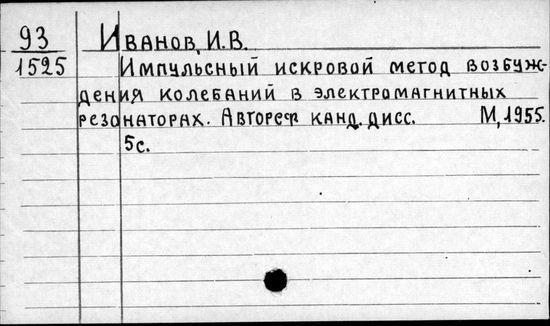 93 Иванов, И.В.
1525 Импульсный искровой метод возбуж-
дения колебаний в электромагнитных
резонаторах. Автореф канд. дисс. М, 1955.
5с.